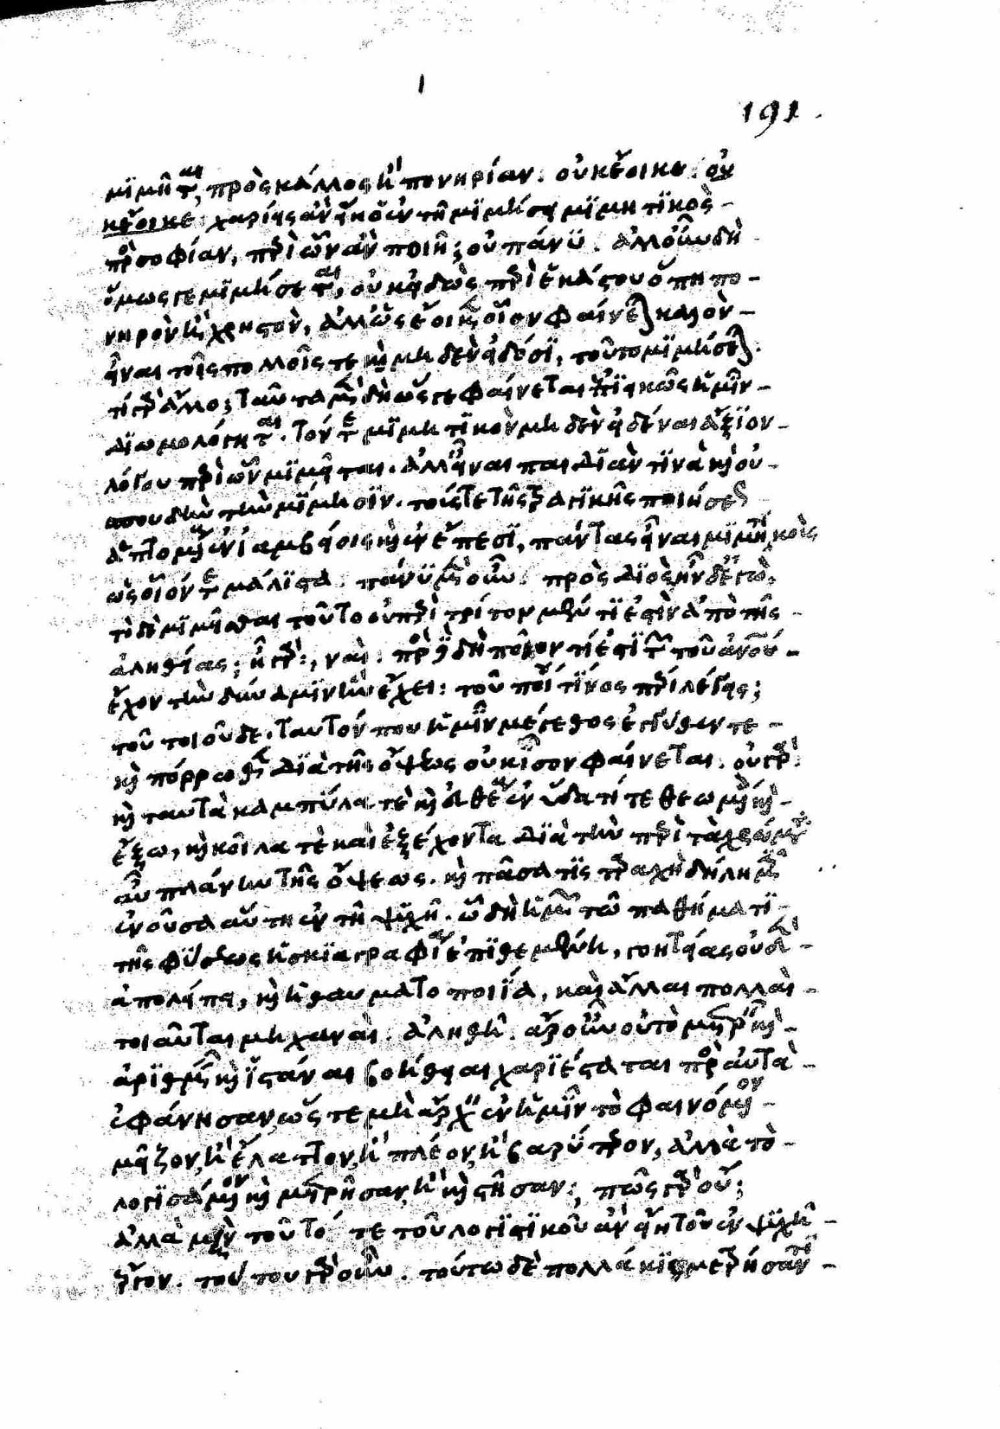 191.
μιμῆται πρὸς κάλλος ἢ πονηρίαν. οὐκ ἔοικε. οὐκ
ἔοικε. χαρίεις ἂν εἴη ὁ ἐν τῇ μιμήσει μιμητικὸς
πρὸς σοφίαν, περὶ ὧν ἂν ποιῇ; οὐ πάνυ. ἀλλ' οὖν δὴ
ὅμως γε μιμήσεται, οὐκ εἰδὼς περὶ ἑκάστου ὅπῃ πο-
νηρὸν ἢ χρηστὸν, ἀλλ' ὡς ἔοικεν οἷον φαίνεται καλὸν
εἶναι τοῖς πολλοῖς τε καὶ μηδὲν εἰδόσι, τοῦτο μιμήσεται.
τί γὰρ ἄλλο; ταῦτα μὲν δὴ ὥς γε φαίνεται ἐπιεικῶς ἡμῖν
διωμολόγηται. τόν τε μιμητικὸν μηδὲν εἰδέναι ἄξιον
λόγου περὶ ὧν μιμεῖται. ἀλλ' εἶναι παιδιάν τινα καὶ οὐ
σπουδὴν τὴν μίμησιν. τούς τε τῆς τραγικῆς ποιήσεως
ἁπτομένους ἐν ἰαμβείοις καὶ ἐν ἔπεσι, πάντας εἶναι μιμητικοὺς
ὡς οἷόν τε μάλιστα. πάνυ μὲν οὖν. πρὸς Διὸς ἦν δ' ἐγώ,
τὸ δὲ μιμεῖσθαι τοῦτο οὐ περὶ τρίτον μέν τί ἐστὶν ἀπὸ τῆς
ἀληθείας; ἦ γάρ; ναί. πρὸς δὲ δὴ ποῖον τί ἐστι τῶν τοῦ ἀνθρώπου
ἔχον τὴν δύναμιν ἣν ἔχει; τοῦ ποίου τινὸς περὶ λέγεις;
τοῦ τοιοῦδε. ταὐτόν που ἡμῖν μέγεθος ἐγγύθεν τε
καὶ πόρρωθεν διὰ τῆς ὄψεως οὐκ ἴσον φαίνεται. οὐ γάρ.
καὶ ταὐτὰ καμπύλα τε καὶ εὐθέα ἐν ὕδατί τε θεωμένοις καὶ
ἔξω, καὶ κοῖλά τε καὶ ἐξέχοντα διὰ τὴν περὶ τὰ χρώματα
αὖ πλάνην τῆς ὄψεως. καὶ πᾶσά τις ταραχὴ δήλη ἡμῖν
ἐνοῦσα αὕτη ἐν τῇ ψυχῇ. ᾧ δὴ ἡμῶν τῷ παθήματι
τῆς φύσεως ἡ σκιαγραφία ἐπιθεμένη, γοητείας οὐδὲν
ἀπολείπει, καὶ ἡ θαυματοποιία, καὶ ἄλλαι πολλαὶ
τοιαῦται μηχαναί. ἀληθῆ. ἆρ' οὖν οὐ τὸ μετρεῖν καὶ
ἀριθμεῖν καὶ ἱστάναι βοήθειαι χαριέσταται πρὸς αὐτὰ
ἐφάνησαν, ὥστε μὴ ἄρχειν ἐν ἡμῖν τὸ φαινόμενον
μεῖζον, ἢ ἔλαττον, ἢ πλέον, ἢ βαρύτερον, ἀλλὰ τὸ
λογισάμενον καὶ μετρῆσαν, ἢ καὶ στῆσαν; πῶς γὰρ οὔ;
ἀλλὰ μὴν τοῦτό γε τοῦ λογιστικοῦ ἂν εἴη τοῦ ἐν ψυχῇ
ἔργον. τούτου γὰρ οὖν. τούτῳ δὲ πολλάκις μετρήσαντι